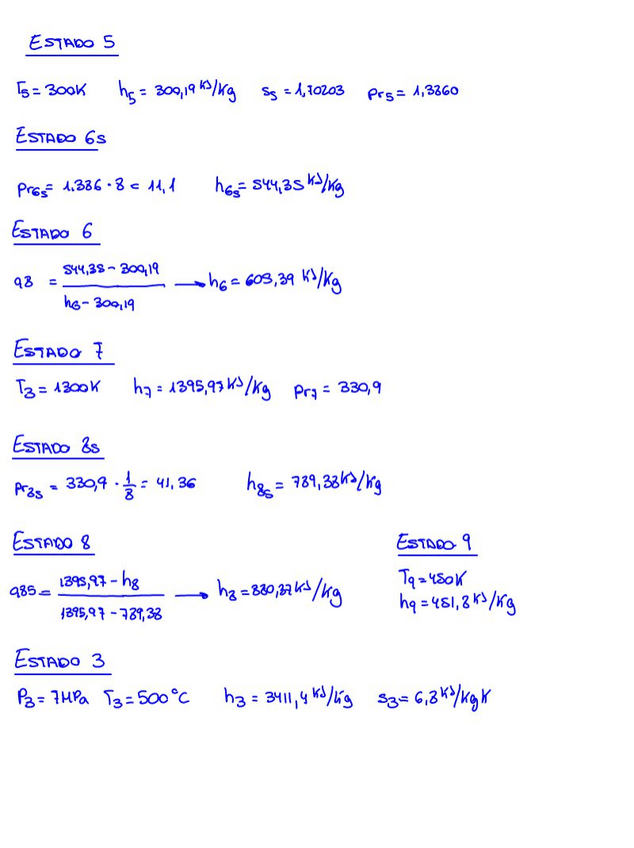 ESTADO 5
T5 = 300K h5 = 300,19 KJ/kg S5 = 1,70203 Pr5 = 1,3860
ESTADO 6s
Pr6s = 1.386 · 8 = 11,1 h6s = 544,35 KJ/kg
ESTADO 6
0,8 = (544,35 - 300,19)/(h6 - 300,19) → h6 = 605,39 KJ/kg
ESTADO 7
T3 = 1300K h7 = 1395,97 KJ/kg Pr7 = 330,9
ESTADO 8s
Pr8s = 330,9 · 1/8 = 41,36 h8s = 789,38 KJ/kg
ESTADO 8 ESTADO 9
T9 = 450K
0,85 = (1395,97 - h8)/(1395,97 - 789,38) → h8 = 880,37 KJ/kg h9 = 451,8 KJ/kg
ESTADO 3
P3 = 7MPa T3 = 500°C h3 = 3411,4 KJ/kg S3 = 6,8 KJ/kgK